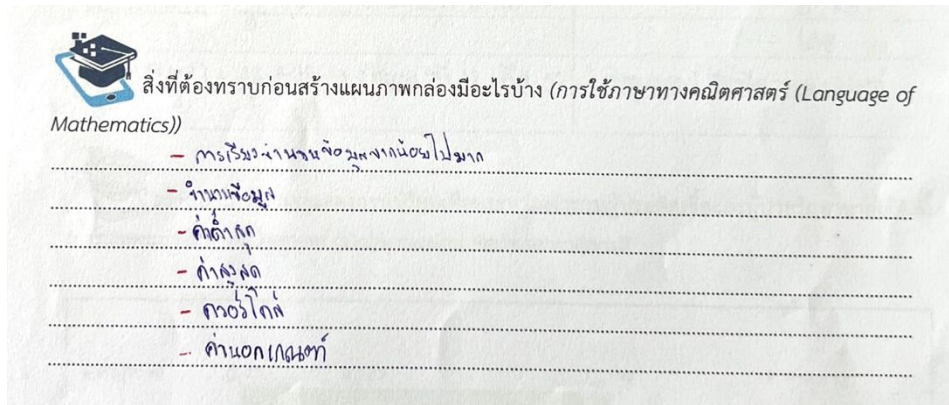 สิ่งที่ต้องทราบก่อนสร้างแผนภาพกล่องมีอะไรบ้าง (การใช้ภาษาทางคณิตศาสตร์ (Language of
Mathematics))
- การเรียงจำนวนข้อมูลจากน้อยไปมาก
- จำนวนข้อมูล
- ค่าต่ำสุด
- ค่าสูงสุด
- ควอร์ไทล์
- ค่านอกเกณฑ์